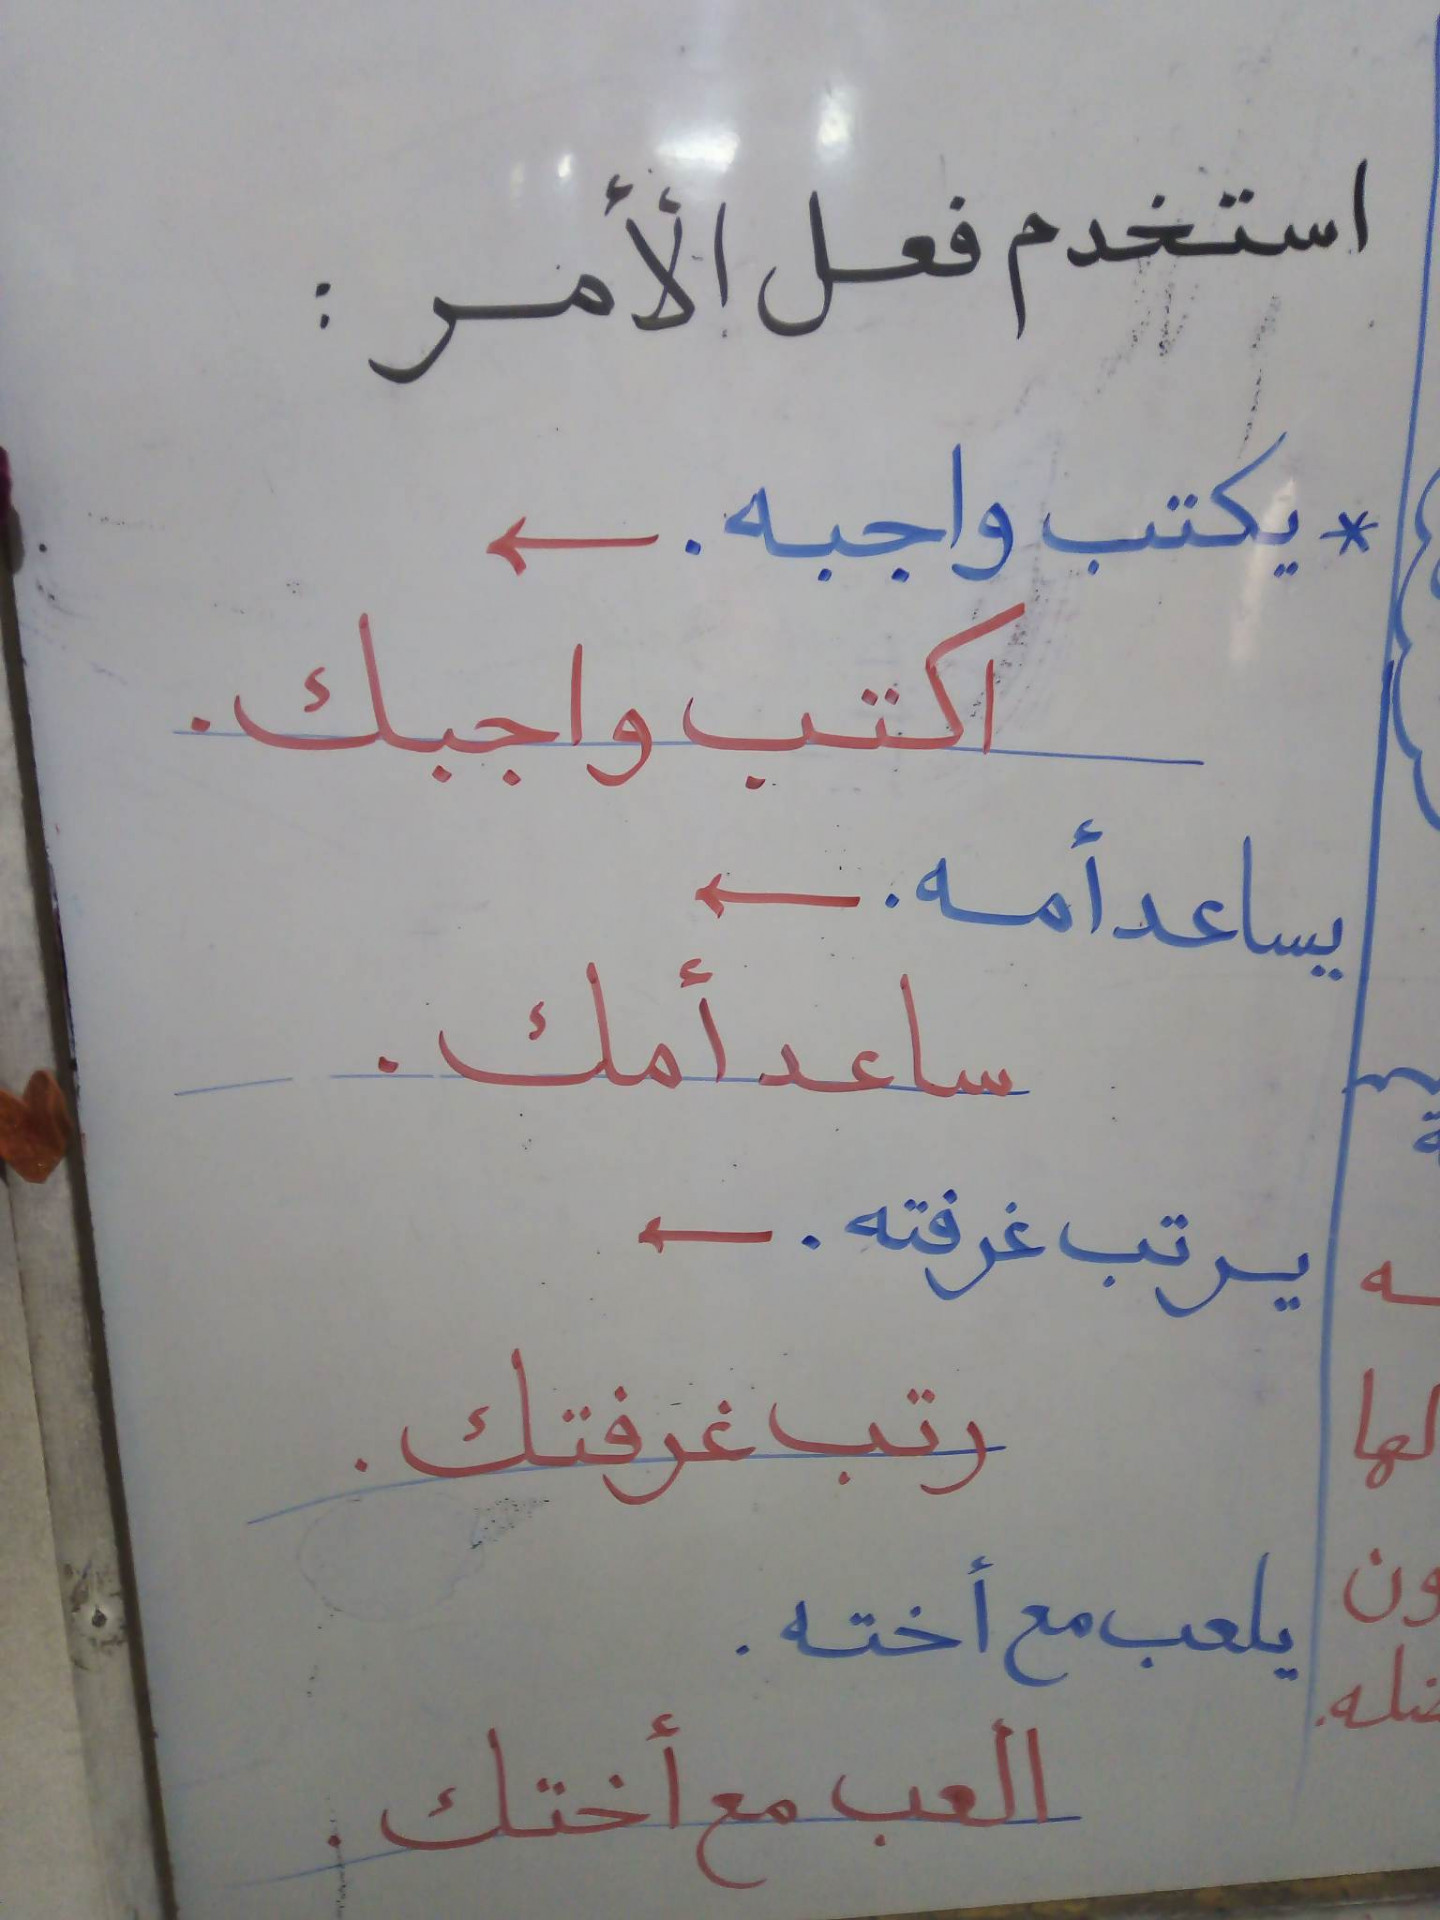 استخدم فعل الأمر :
* يكتب واجبه . ←
اكتب واجبك .
يساعد أمه . ←
ساعد أمك .
يرتب غرفته . ←
رتب غرفتك .
يلعب مع أخته .
العب مع أختك .